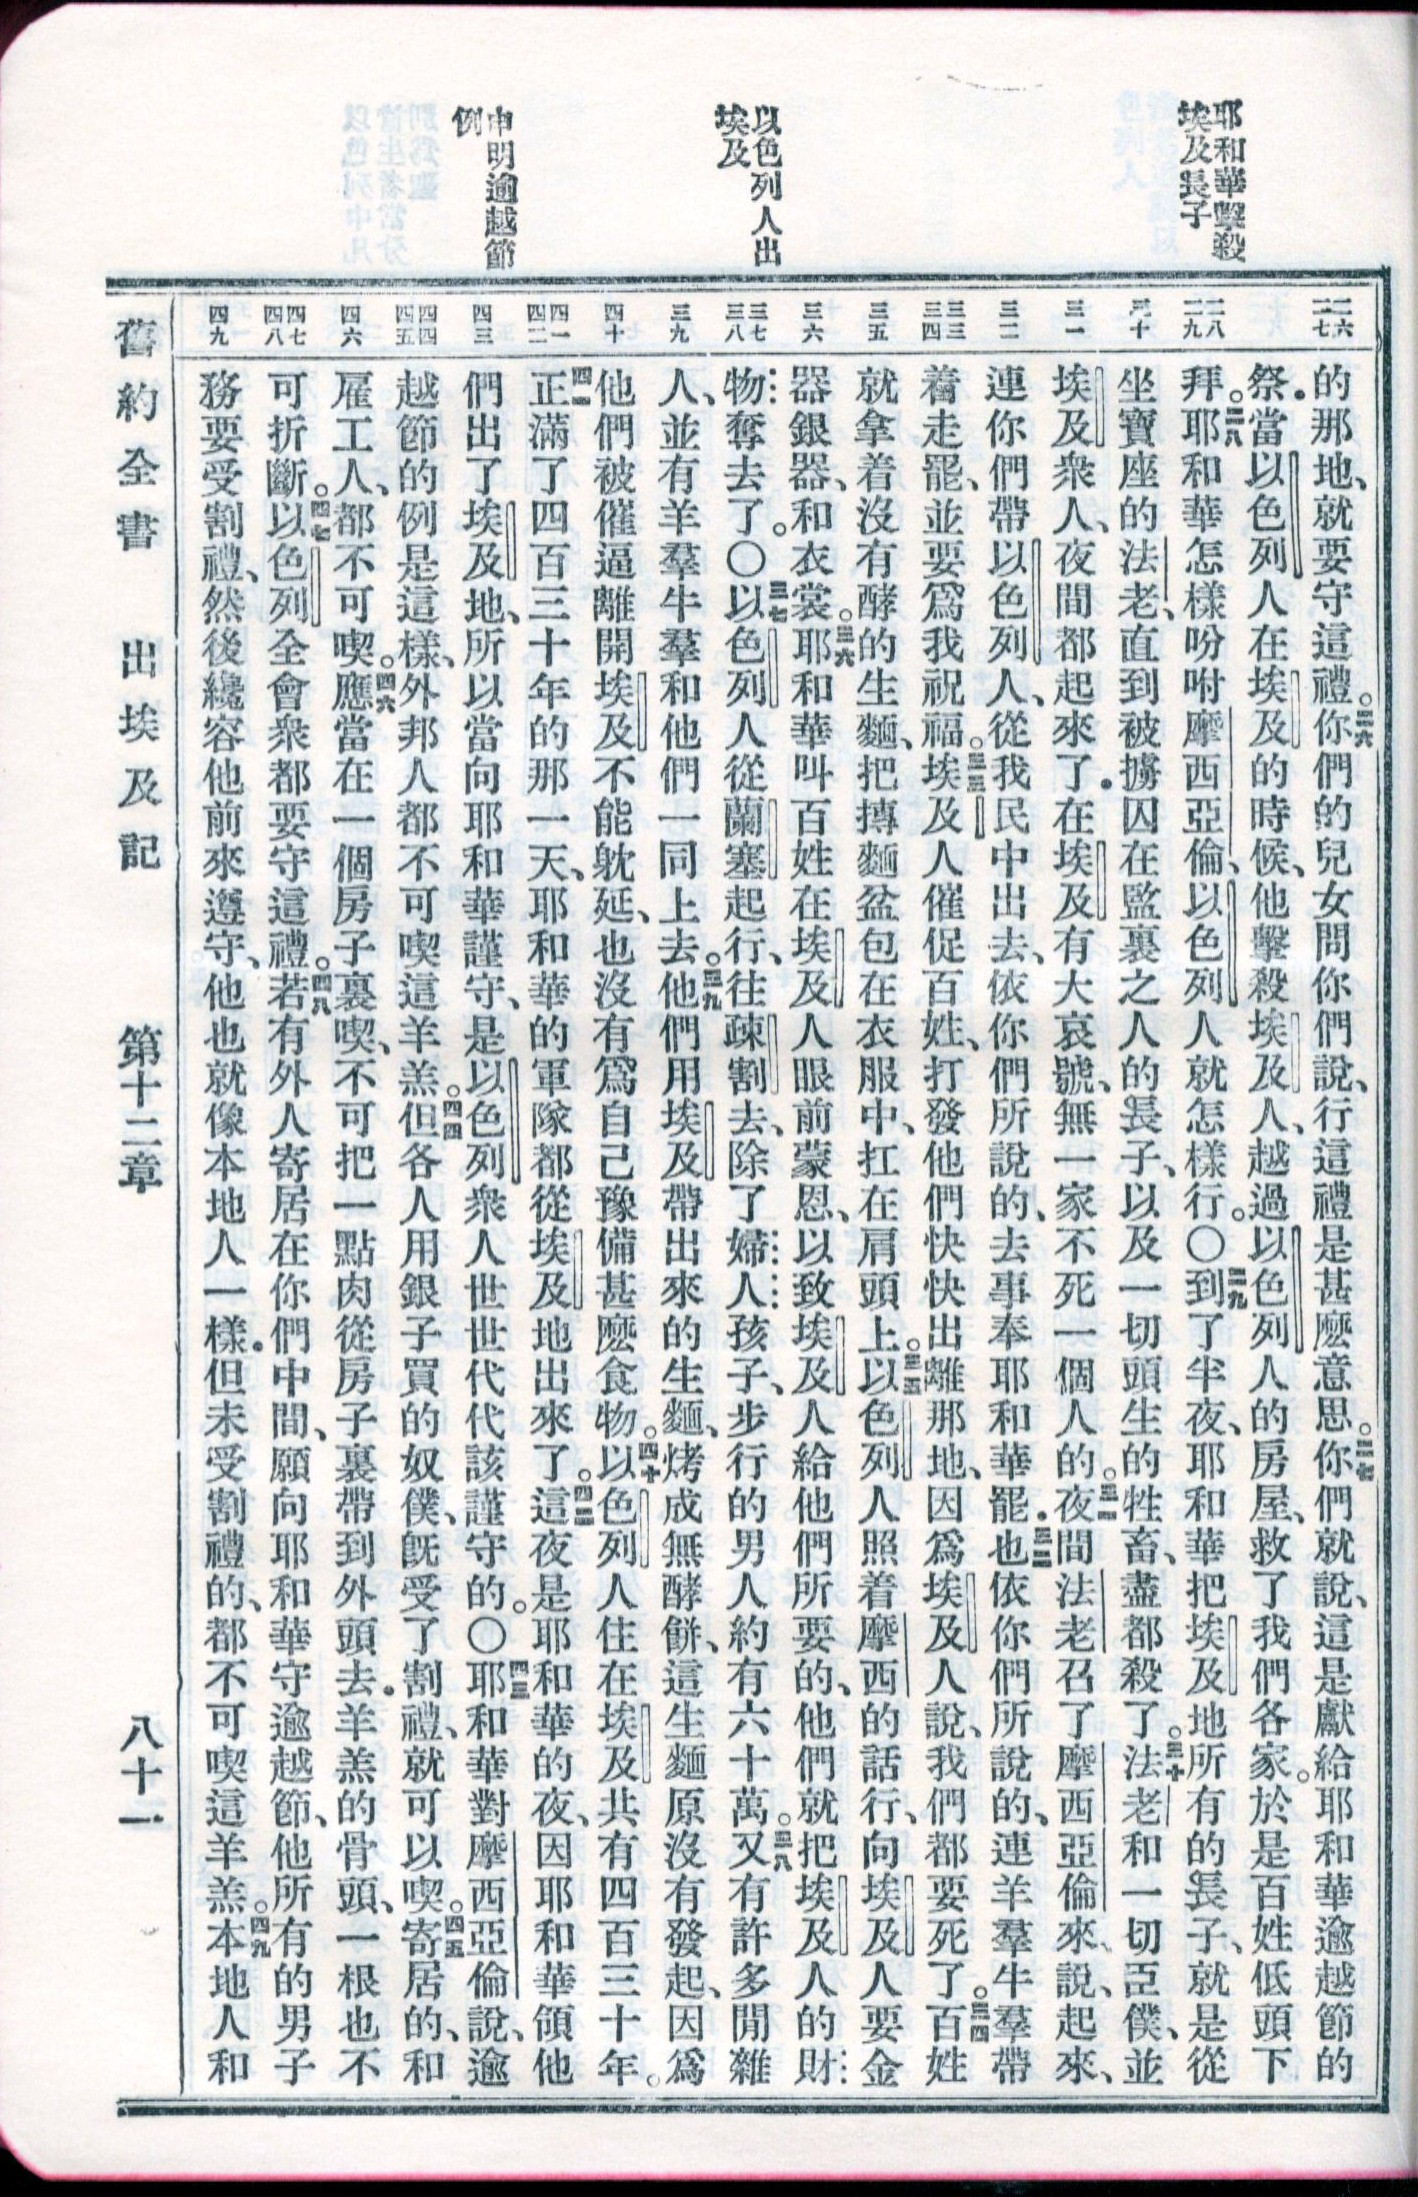 耶和華擊殺
埃及長子
以色列人出
埃及
申明逾越節
例
二六 二七
二八 二九
三十
三一
三二
三三 三四
三五
三六
三七 三八
三九
四十
四一 四二
四三
四四 四五
四六
四七 四八
四九
的那地、就要守這禮。二六你們的兒女問你們說、行這禮是甚麼意思。二七你們就說、這是獻給耶和華逾越節的
祭．當以色列人在埃及的時候、他擊殺埃及人、越過以色列人的房屋、救了我們各家。於是百姓低頭下
拜。二八耶和華怎樣吩咐摩西亞倫、以色列人就怎樣行。〇二九到了半夜、耶和華把埃及地所有的長子、就是從
坐寶座的法老、直到被擄囚在監裏之人的長子、以及一切頭生的牲畜、盡都殺了。三十法老和一切臣僕、並
埃及衆人、夜間都起來了．在埃及有大哀號、無一家不死一個人的。三一夜間法老召了摩西亞倫來、說、起來、
連你們帶以色列人、從我民中出去、依你們所說的、去事奉耶和華罷．三二也依你們所說的、連羊羣牛羣帶
着走罷、並要爲我祝福。三三埃及人催促百姓、打發他們快快出離那地、因爲埃及人說、我們都要死了。三四百姓
就拿着沒有酵的生麵、把摶麵盆包在衣服中、扛在肩頭上。三五以色列人照着摩西的話行、向埃及人要金
器銀器、和衣裳。三六耶和華叫百姓在埃及人眼前蒙恩、以致埃及人給他們所要的、他們就把埃及人的財
物奪去了。〇三七以色列人從蘭塞起行、往疎割去、除了婦人孩子、步行的男人約有六十萬。三八又有許多閒雜
人、並有羊羣牛羣和他們一同上去。三九他們用埃及帶出來的生麵、烤成無酵餅、這生麵原沒有發起、因爲
他們被催逼離開埃及不能躭延、也沒有爲自己豫備甚麼食物。四十以色列人住在埃及共有四百三十年。
四一正滿了四百三十年的那一天、耶和華的軍隊都從埃及地出來了。四二這夜是耶和華的夜、因耶和華領他
們出了埃及地、所以當向耶和華謹守、是以色列衆人世世代代該謹守的。〇四三耶和華對摩西亞倫說、逾
越節的例是這樣、外邦人都不可喫這羊羔。四四但各人用銀子買的奴僕、旣受了割禮、就可以喫。四五寄居的、和
雇工人、都不可喫。四六應當在一個房子裏喫、不可把一點肉從房子裏帶到外頭去．羊羔的骨頭、一根也不
可折斷。四七以色列全會衆都要守這禮。四八若有外人寄居在你們中間、願向耶和華守逾越節、他所有的男子
務要受割禮、然後纔容他前來遵守、他也就像本地人一樣．但未受割禮的、都不可喫這羊羔。四九本地人和
舊約全書　出埃及記　第十二章　八十一